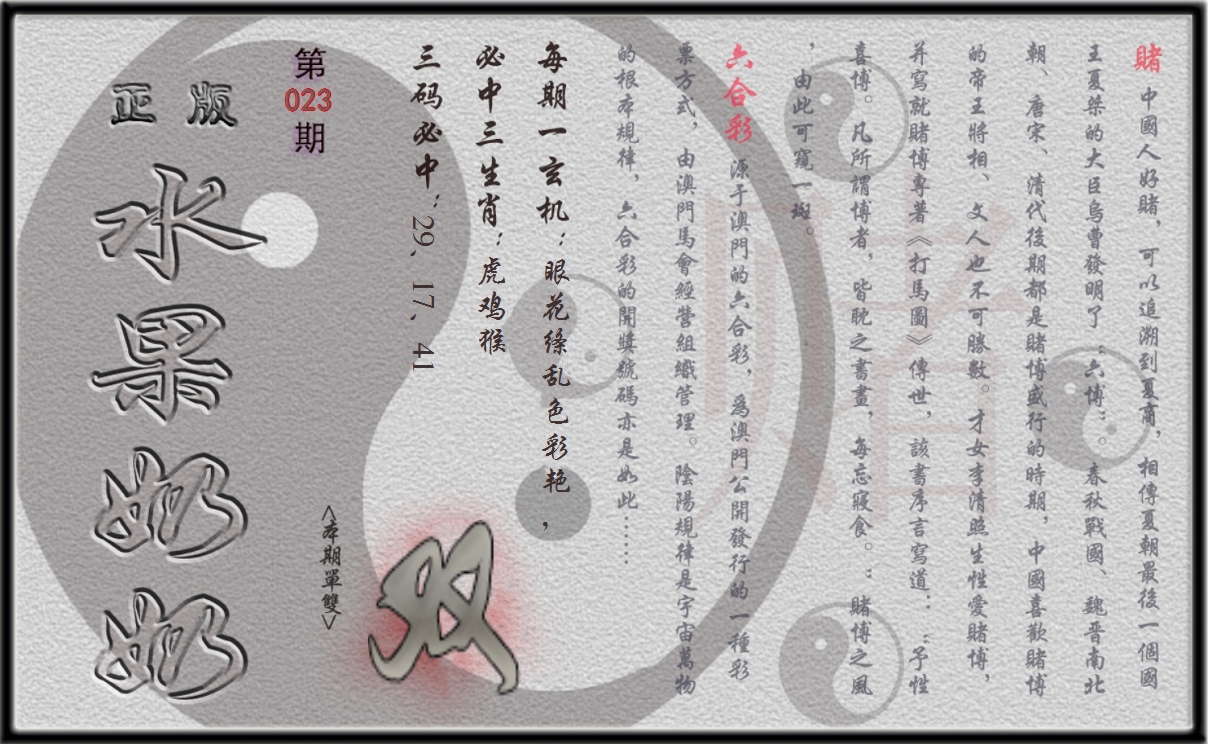 賭 中國人好賭，可以追溯到夏商，相傳夏朝最後一個國
王夏桀的大臣烏曹發明了“六博”。春秋戰國、魏晉南北
朝、唐宋、清代後期都是賭博盛行的時期，中國喜歡賭博
的帝王將相、文人也不可勝數。才女李清照生性愛賭博，
并寫就賭博專著《打馬圖》傳世，該書序言寫道：“予性
喜博。凡所謂博者，皆耽之書畫，每忘寢食。：賭博之風
，由此可窺一斑。
六合彩 源于澳門的六合彩，爲澳門公開發行的一種彩
票方式，由澳門馬會經營組織管理。陰陽規律是宇宙萬物
的根本規律，六合彩的開獎號碼亦是如此……
每期一玄机：眼花缭乱色彩艳，
必中三生肖：虎鸡猴
三码必中：29、17、41
<本期單雙>
双
第
023
期
正版
水果奶奶